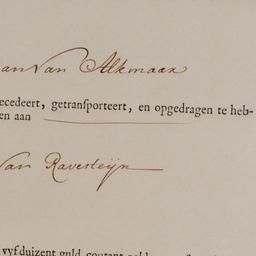 an van Alkmaar
ecedeert, getransporteert, en opgedragen te heb-
en aan
van Ravesteijn
vyf duizent guld. courant